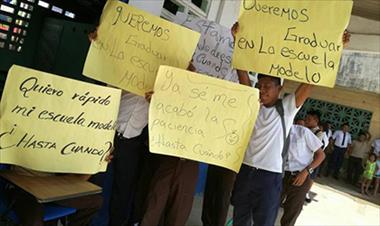 Quiero rápido
mi escuela modelo
¿Hasta cuando?
Queremos
Graduar
en La escuela
Modelo
Ya se me
acabó la
paciencia
¿Hasta Cuándo?
Queremos
Graduar
en La escuela
modelo